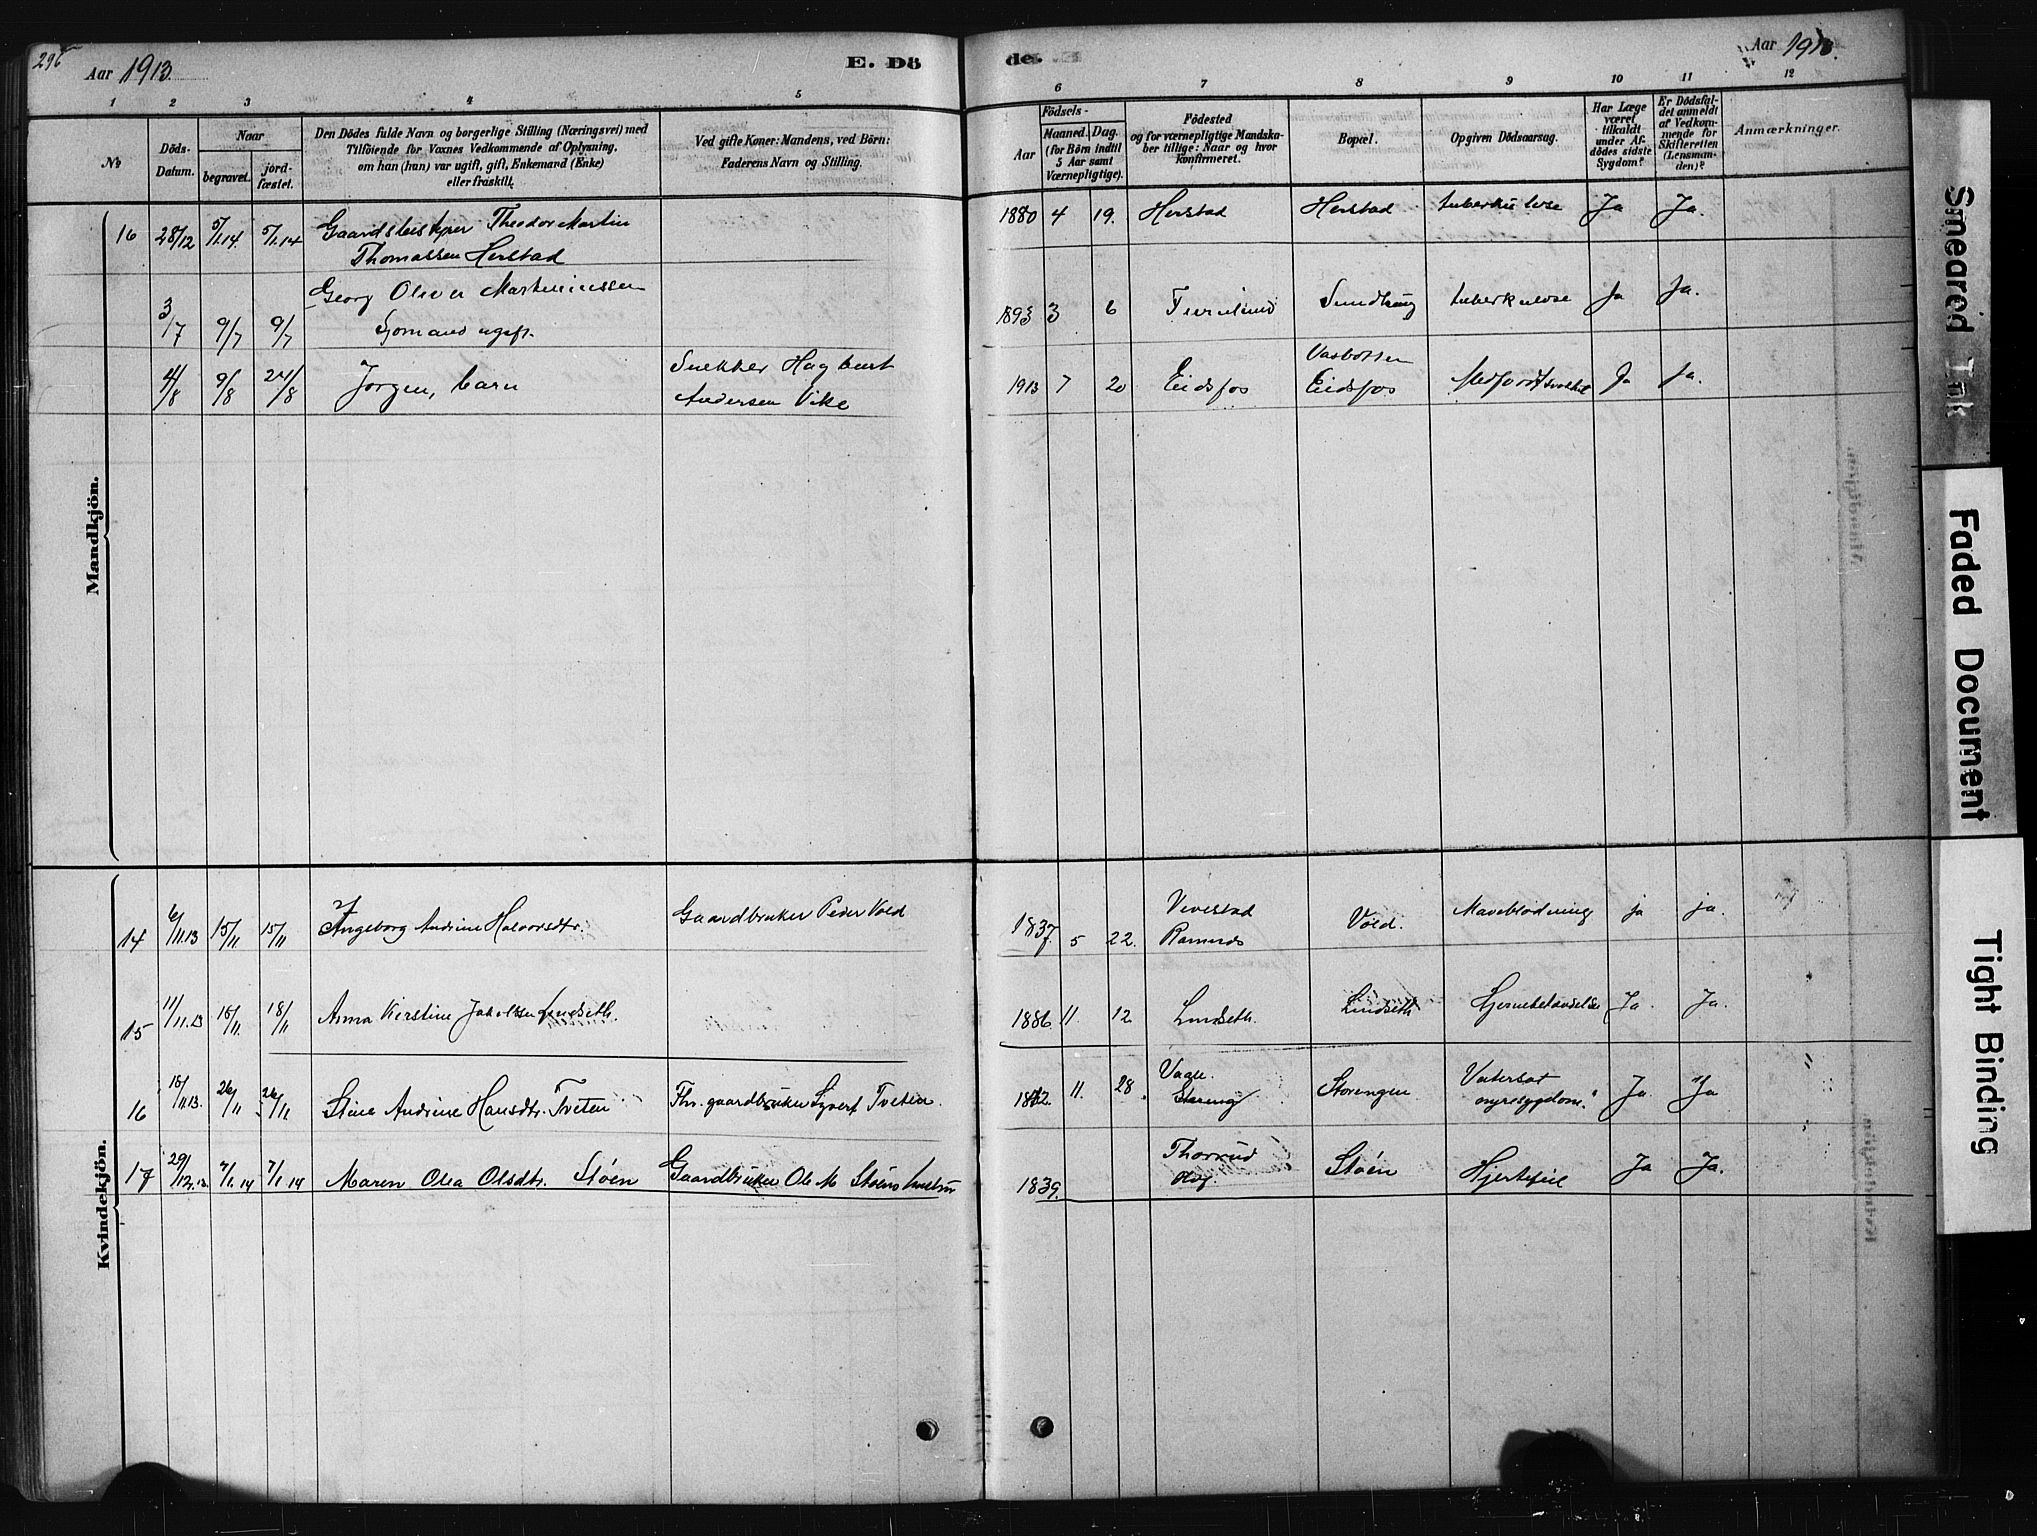 296
Aar 1913.
E. Dö
de.
Aar 1913.
1 2 3 4 5 6 7 8 9 10 11 12
No
Döds-
Datum.
Naar
begravet.
jord-
fæstet.
Den Dödes fulde Navn og borgerlige Stilling (Næringsvei) med
Tilföiende for Voxnes Vedkommende af Oplysning,
om han (hun) var ugift, gift, Enkemand (Enke)
eller fraskilt.
Ved gifte Koner: Mandens, ved Börn:
Faderens Navn og Stilling.
Födsels-
Aar
Maaned. Dag.
(for Börn indtil
5 Aar samt
Værnepligtige).
Födested
og for værnepligtige Mandska-
ber tillige: Naar og hvor
konfirmeret.
Bopæl.
Opgiven Dödsaarsag.
Har Læge
været
tilkaldt
under Af-
dödes sidste
Sygdom?
Er Dödsfal-
det anmeldt
af Vedkom-
mende for
Skifteretten
(Lensman-
den)?
Anmærkninger.
Mandkjön.
16 28/12 5/1.14. 5/1.14 Gaardsbestyrer Theodor Martin
Thomassen Herstad
1880 4 19. Herstad Herstad tuberkulose Ja Ja.
3/7 9/7 9/7 Georg Oliver Martiniussen
Sjømand ugift.
1893 3 6 tuberkulose Ja Ja.
4/8 9/8 24/8 Jørgen, barn
Snekker Hagbart
Andersen Vike
1913 7 20 Eidsfos
Vasbotten
Eidsfos
Medfødt svakhet Ja Ja.
Kvindekjön.
14 6/11.13 15/11 15/11 Ingeborg Andrine Halvorsdtr. Gaardbruker Peder Vold
1837. 5 22. Vivestad
Ramnes
Vold. Maveblødning ja ja.
15 11/11.13 18/11 18/11 Anna Kirstine Jakobsen Lindseth.
1886 11. 12 Lindseth. Lindseth Hjernebetændelse Ja Ja.
16 18/11.13. 26/11 26/11 Stine Andrine Hansdtr. Tveten Fhv. gaardbruker Syvert Tveten.
11. 28. Storengen
nyresygdom. Ja Ja
17 29/12.13 7/1.14 7/1.14 Maren Olea Olsdtr. Støen Gaardbruker Ole M. Støens hustru
1839. Thorrud
Støen Hjertefeil Ja Ja.
Smeared Ink
Faded Document
Tight Binding